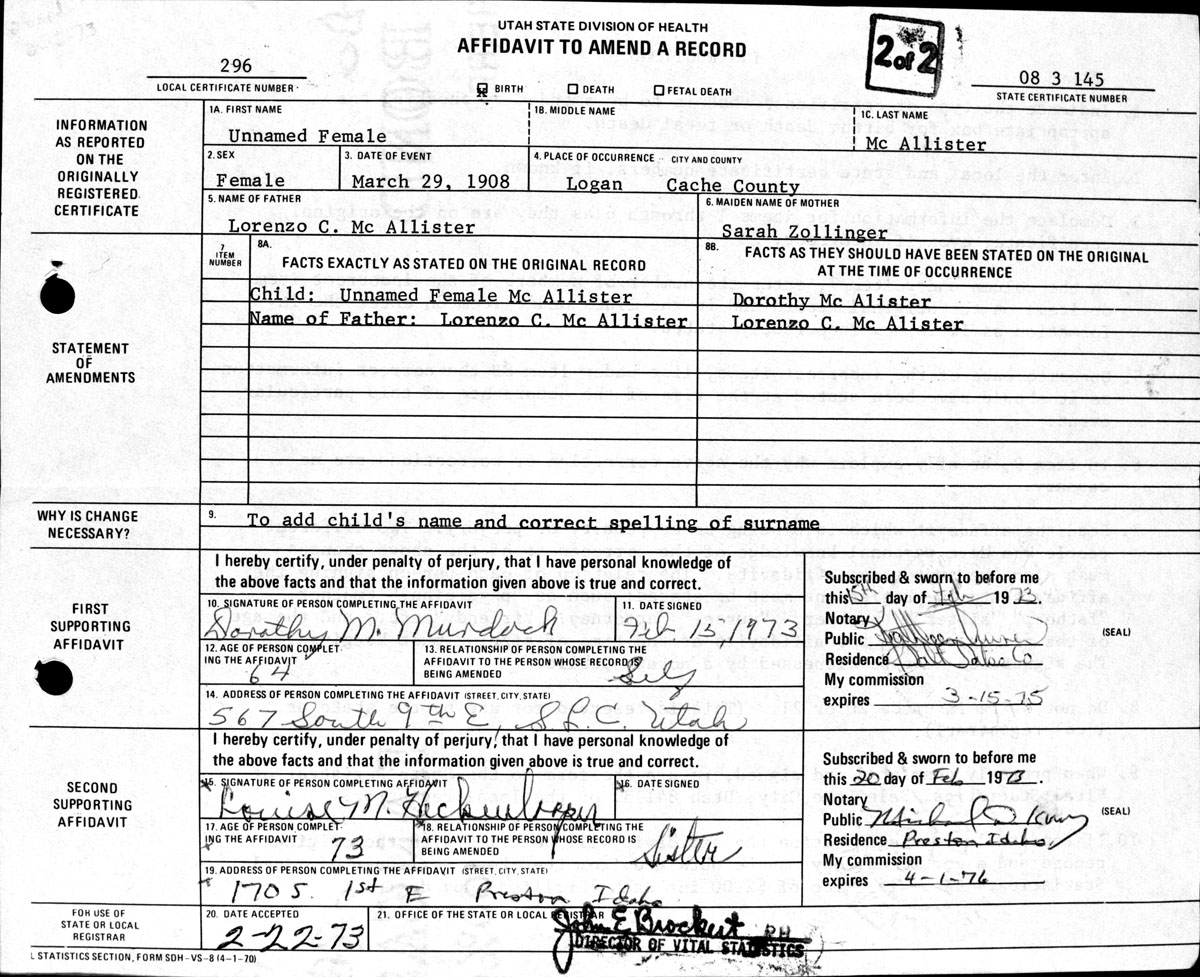 UTAH STATE DIVISION OF HEALTH
AFFIDAVIT TO AMEND A RECORD
2 of 2
296
LOCAL CERTIFICATE NUMBER
BIRTH DEATH FETAL DEATH
08 3 145
STATE CERTIFICATE NUMBER
INFORMATION
AS REPORTED
ON THE
ORIGINALLY
REGISTERED
CERTIFICATE
1A. FIRST NAME 1B. MIDDLE NAME 1C. LAST NAME
Unnamed Female Mc Allister
2. SEX 3. DATE OF EVENT 4. PLACE OF OCCURRENCE - CITY AND COUNTY
Female March 29, 1908 Logan Cache County
5. NAME OF FATHER 6. MAIDEN NAME OF MOTHER
Lorenzo C. Mc Allister Sarah Zollinger
STATEMENT
OF
AMENDMENTS
7 ITEM NUMBER
8A. FACTS EXACTLY AS STATED ON THE ORIGINAL RECORD
8B. FACTS AS THEY SHOULD HAVE BEEN STATED ON THE ORIGINAL
AT THE TIME OF OCCURRENCE
Child: Unnamed Female Mc Allister Dorothy Mc Alister
Name of Father: Lorenzo C. Mc Allister Lorenzo C. Mc Alister
WHY IS CHANGE
NECESSARY?
9. To add child's name and correct spelling of surname
FIRST
SUPPORTING
AFFIDAVIT
I hereby certify, under penalty of perjury, that I have personal knowledge of
the above facts and that the information given above is true and correct.
10. SIGNATURE OF PERSON COMPLETING THE AFFIDAVIT 11. DATE SIGNED
Dorothy M. Murdock Feb 15, 1973
12. AGE OF PERSON COMPLETING THE AFFIDAVIT
64
13. RELATIONSHIP OF PERSON COMPLETING THE
AFFIDAVIT TO THE PERSON WHOSE RECORD IS
BEING AMENDED
Self
14. ADDRESS OF PERSON COMPLETING THE AFFIDAVIT (STREET, CITY, STATE)
567 South 9th E, S.L.C. Utah
Subscribed & sworn to before me
this 15th day of Feb 1973.
Notary
Public (SEAL)
Residence Salt Lake Co
My commission
expires 3-15-75
SECOND
SUPPORTING
AFFIDAVIT
I hereby certify, under penalty of perjury, that I have personal knowledge of
the above facts and that the information given above is true and correct.
15. SIGNATURE OF PERSON COMPLETING AFFIDAVIT 16. DATE SIGNED
Louise M.
17. AGE OF PERSON COMPLETING THE AFFIDAVIT
73
18. RELATIONSHIP OF PERSON COMPLETING THE
AFFIDAVIT TO THE PERSON WHOSE RECORD IS
BEING AMENDED
Sister
19. ADDRESS OF PERSON COMPLETING THE AFFIDAVIT (STREET, CITY, STATE)
170 S. 1st E Preston Idaho
Subscribed & sworn to before me
this 20 day of Feb 1973
Notary
Public (SEAL)
Residence Preston Idaho
My commission
expires 4-1-76
FOR USE OF
STATE OR LOCAL
REGISTRAR
20. DATE ACCEPTED
2-22-73
21. OFFICE OF THE STATE OR LOCAL REGISTRAR
John E Brockert RH
DIRECTOR OF VITAL STATISTICS
L STATISTICS SECTION, FORM SDH-VS-8 (4-1-70)